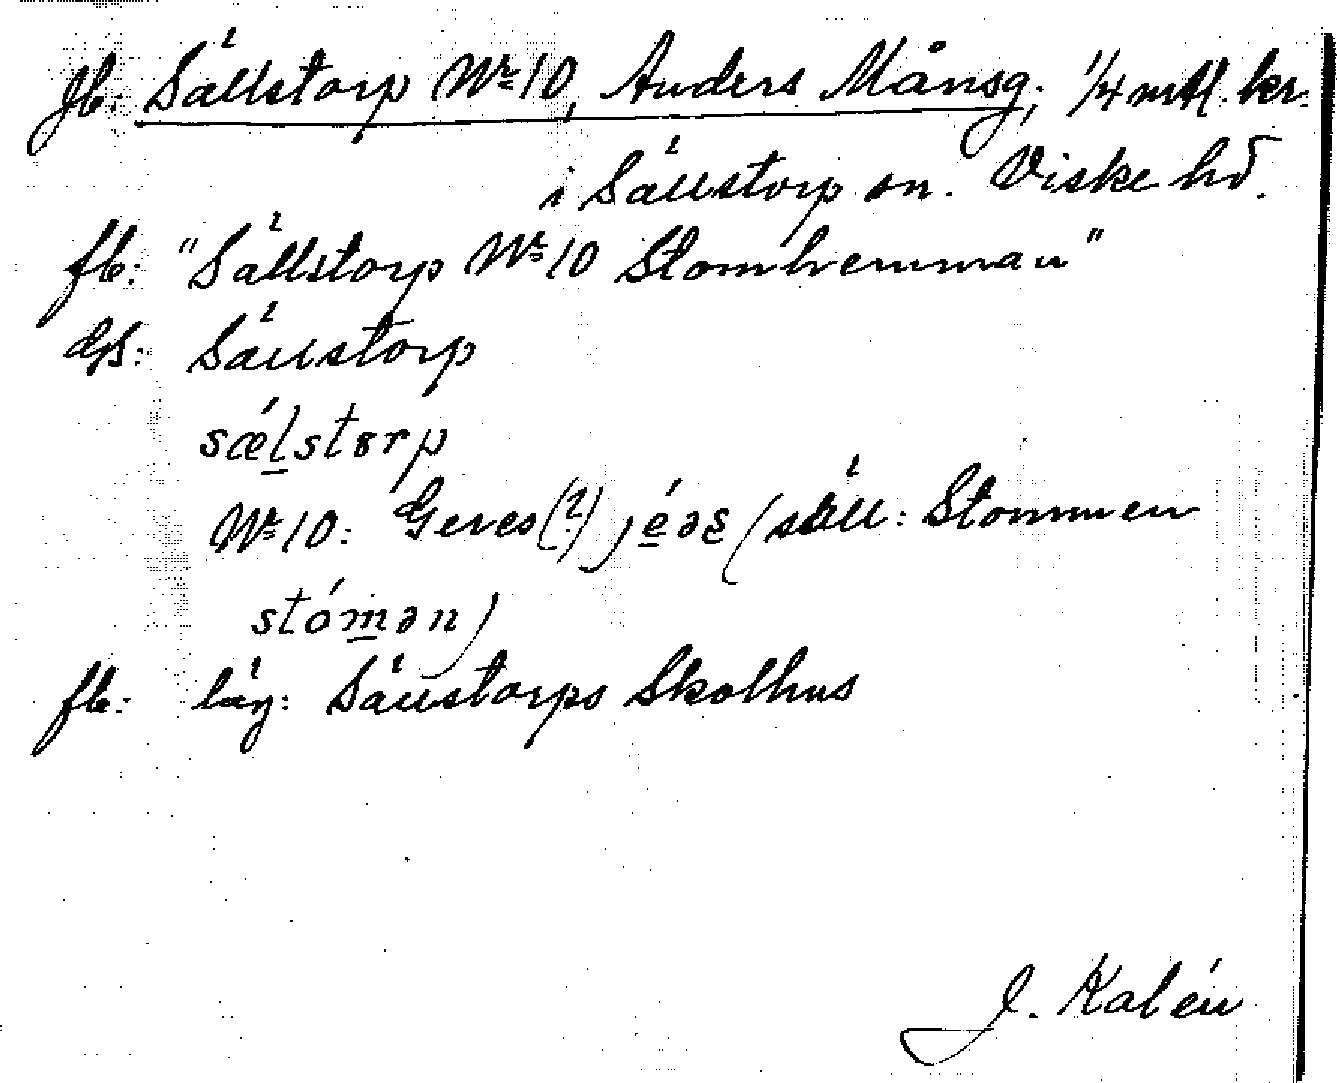 Jb: Sällstorp No 10, Anders Månsg; 1/4 mtl. kr.
i Sällstorp sn. Viske hd.
fb: "Sällstorp No 10 Stomhemman"
Sällstorp
sǽlstɞrp
No 10: Geres(?) jéəs (säll: Stommen
stómən)
fb: läg: Sällstorps Skolhus
J. Kalén